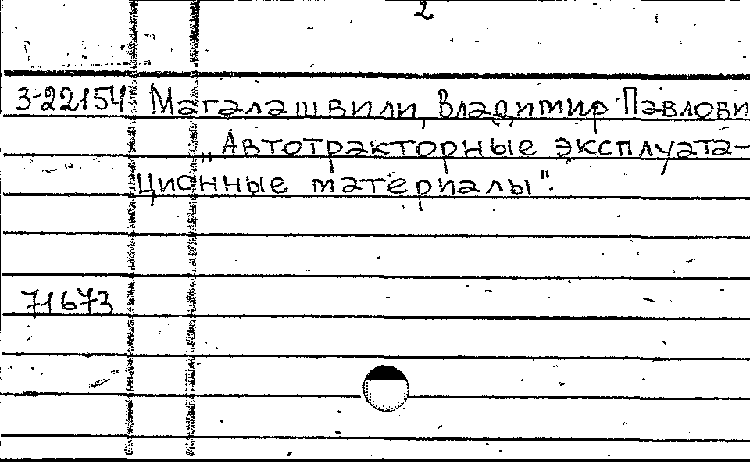 2
3-22154 Магалашвили, Владимир Павлови
„Автотракторные эксплуата-
ционные материалы".
71673